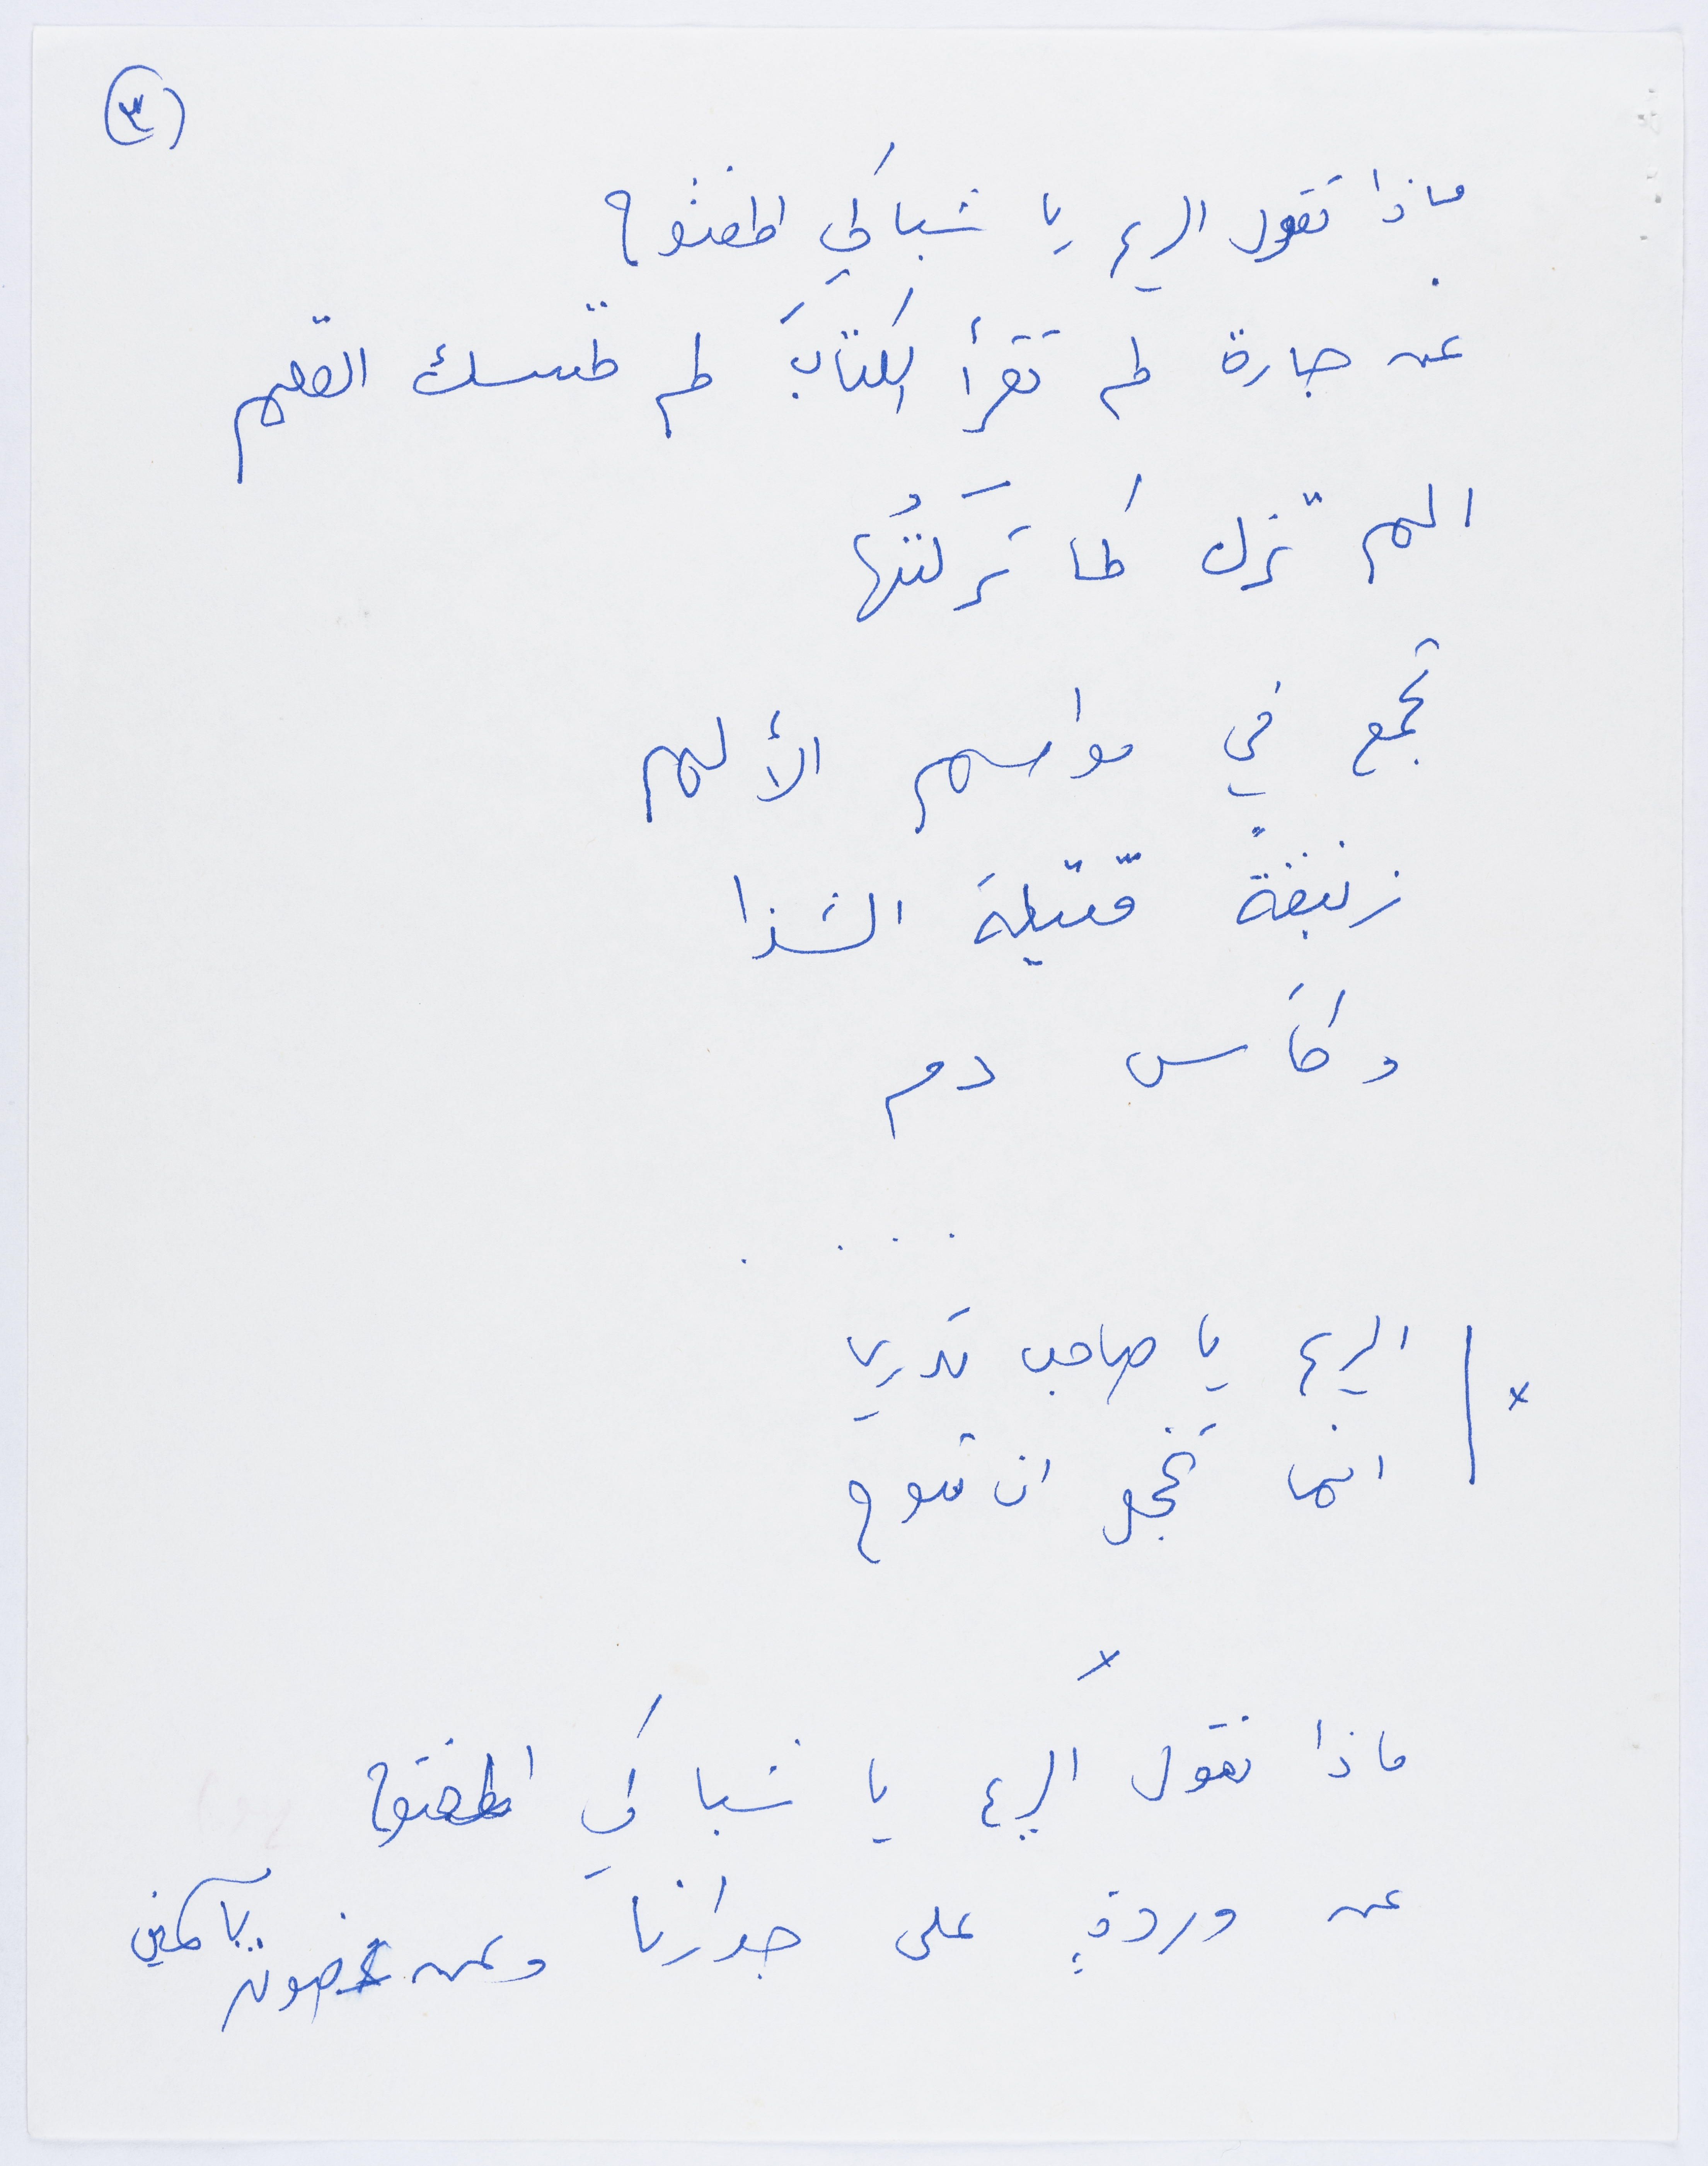 (٣)
ماذا تقول الريح يا شباكي المفتوح
عن جارة لم تقرأ الكتابَ لم تمسك القلم
الم تزل كما تَركتُها
تجمع في مواسم الألم
زنبقةً قتيلةَ الشذا
وكأس دم
. . . .
الريح يا صاحب تدري
انما تخجل ان تبوح
×
×
ماذا تقول الريح يا شباكي المفتوح
عن وردةٍ على جدارنا وعن غصون ياسمين